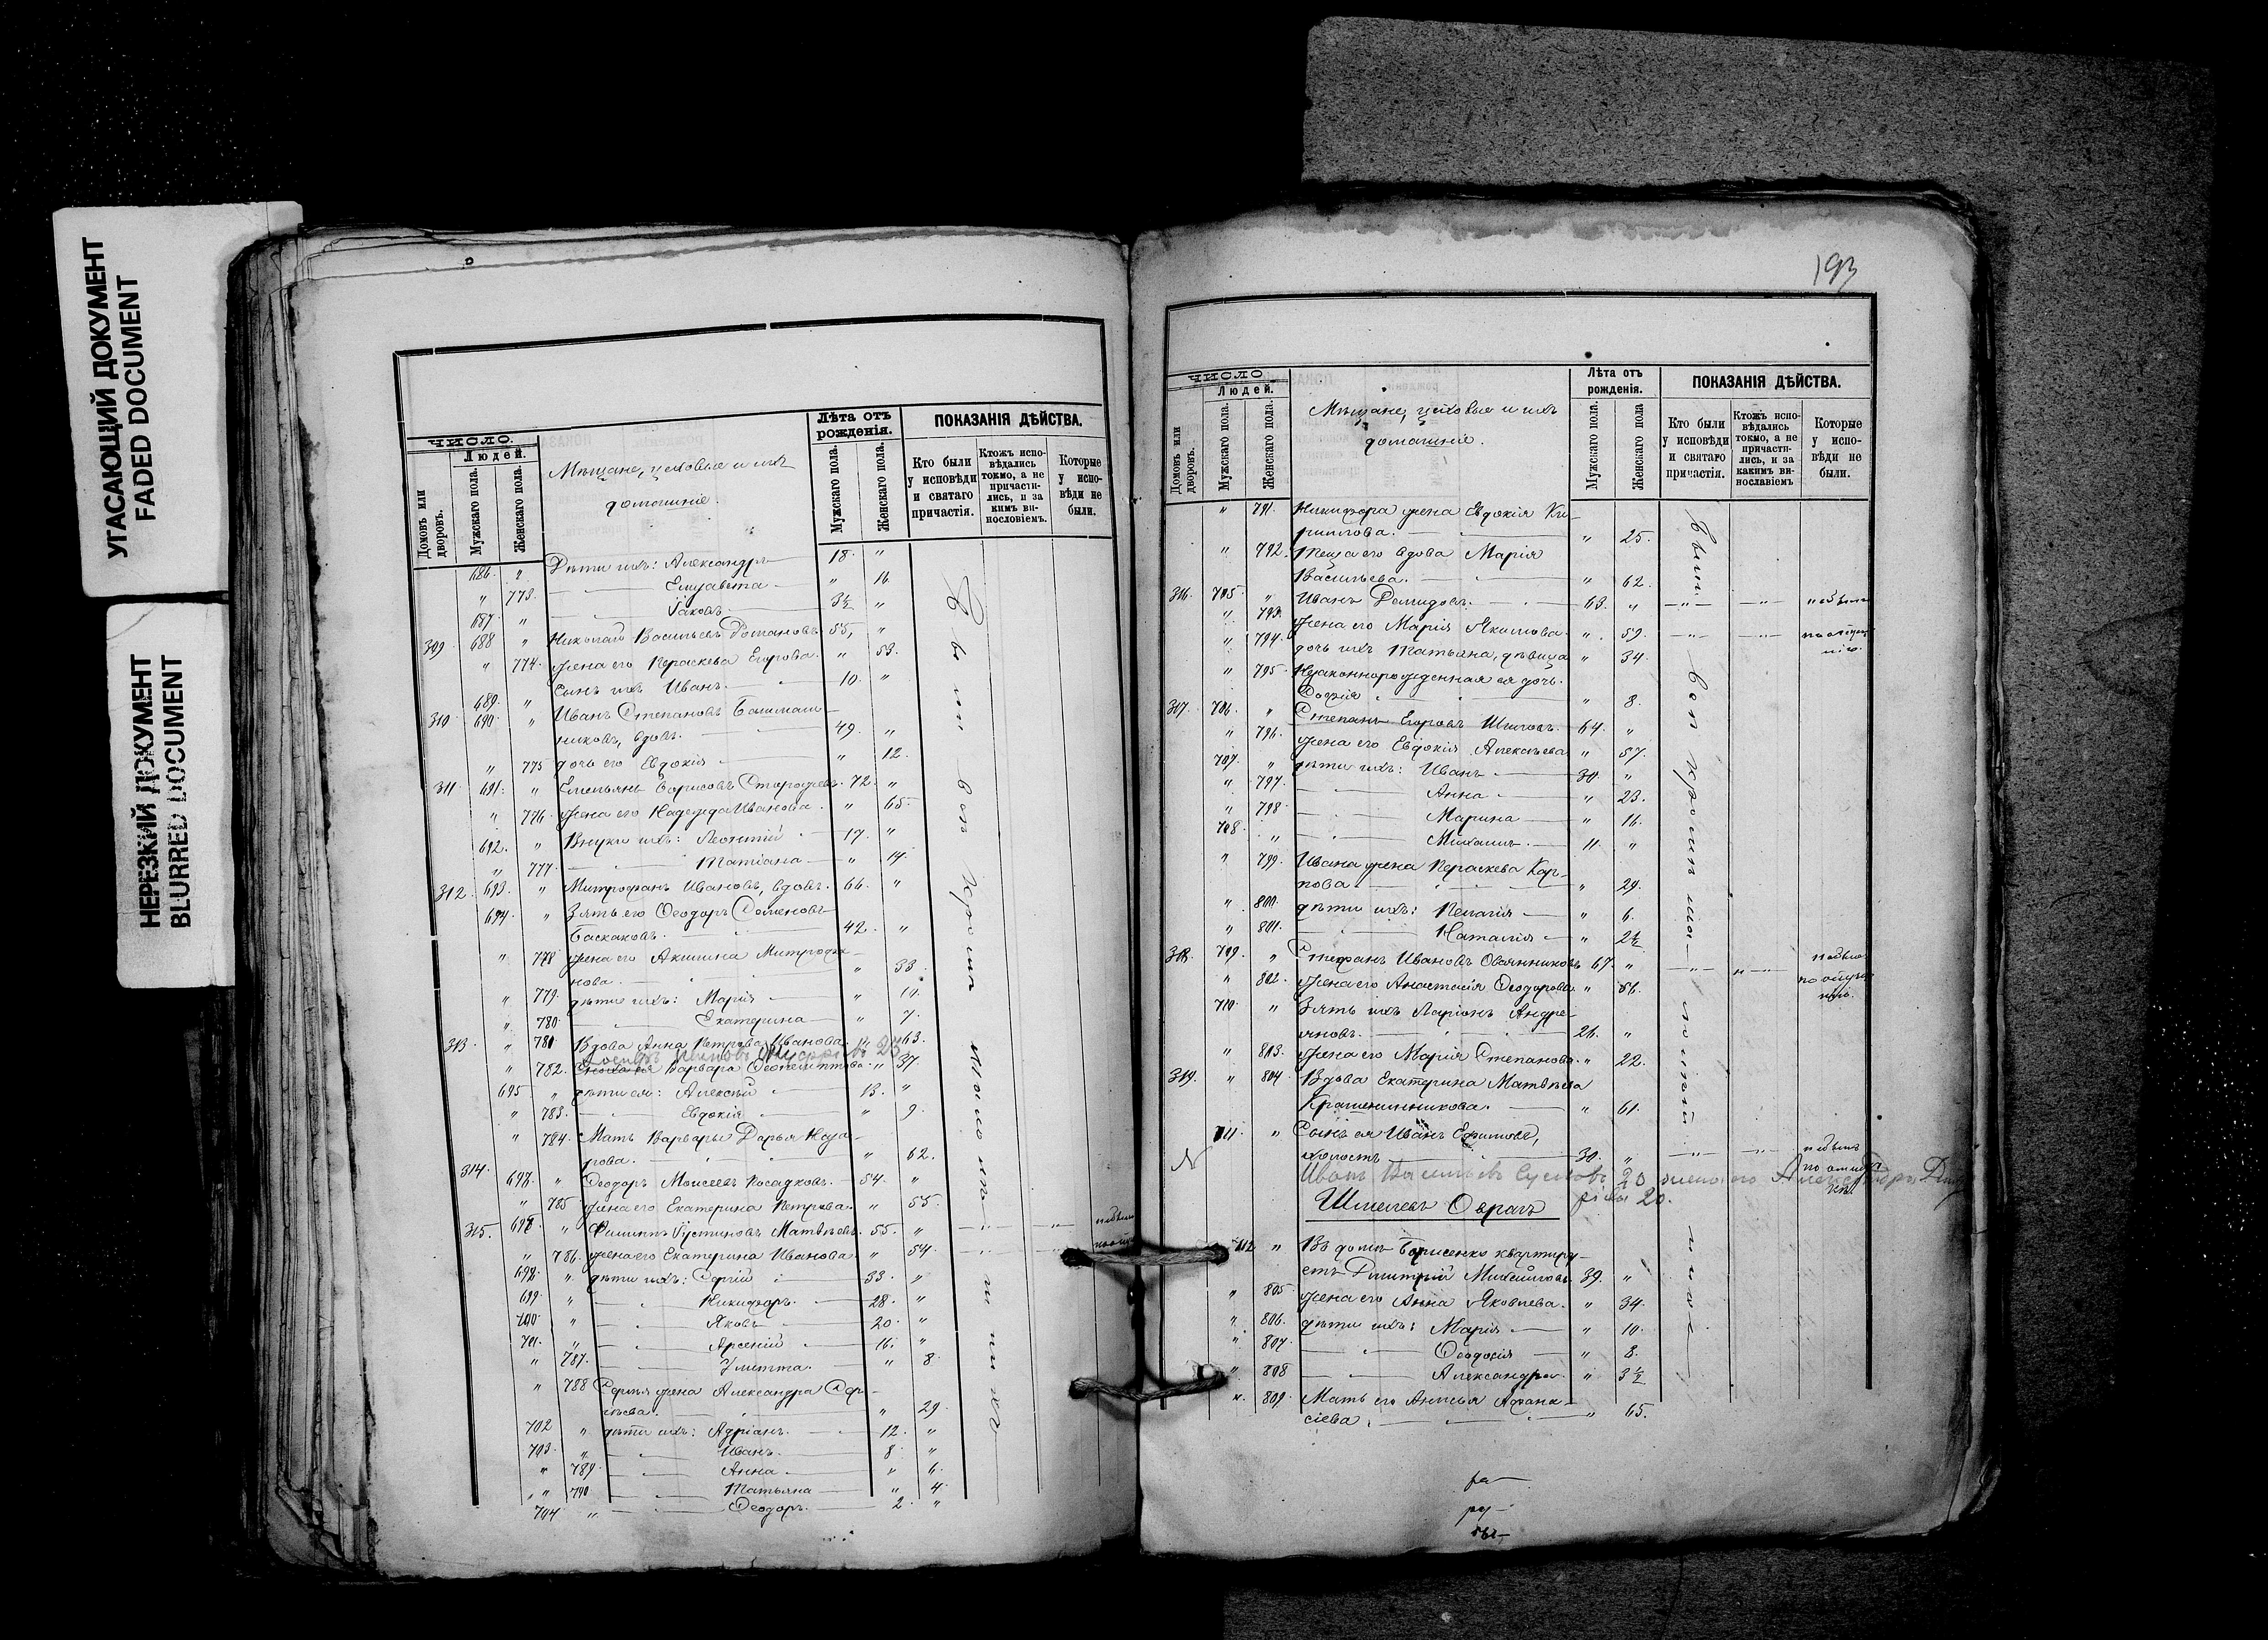 УГАСАЮЩИЙ ДОКУМЕНТ
FADED DOCUMENT
НЕРЕЗКИЙ ДОКУМЕНТ
BLURRED DOCUMENT
ЧИСЛО.
Людей.
Домовъ или дворовъ.
Мужскаго пола.
Женскаго пола.
Мѣщане, цеховые и ихъ
домашніе.
Лѣта отъ рожденія.
Мужскаго пола.
Женскаго пола.
ПОКАЗАНІЯ ДѢЙСТВА.
Кто были у исповѣди и святаго причастія.
Ктожъ исповѣдались токмо, а не причастились, и за кимъ винословіемъ.
Которые у исповѣди не были.
686. " Дѣти ихъ: Александръ 18. "
" 773. Елисавета " 16.
687. " Іаковъ 3½ "
309 688 " Николай Васильевъ Романовъ 55, "
" 774. жена его Параскева Егорова " 53.
689. " сынъ ихъ Иванъ 10. "
310. 690. " Иванъ Степановъ Башмаш-
никовъ, вдовъ. 49. "
" 775 дочь его Евдокія " 12.
311. 691. " Емельянъ Борисовъ Сторожевъ. 72. "
" 776. жена его Надежда Иванова. " 65.
692. " Внуки ихъ: Леонтій 17. "
" 777. Татіана " 14.
312. 693. " Митрофанъ Ивановъ, вдовъ. 66. "
694. " Зять его Ѳеодоръ Семеновъ
Баскаковъ. 42. "
" 778 жена его Акилина Митрофа-
нова. " 33.
" 779. дѣти ихъ: Марія " 10.
" 780. Екатерина " 7.
313. " 781. Вдова Анна Петрова Иванова. " 63.
" 782. Варвара Ѳеоктистова " 37.
695 " дѣти ея: Алексѣй 13. "
" 783. Евдокія " 9.
" 784. Мать Варвары Дарья Наза-
рова. " 62.
314. 696. " Ѳеодоръ Моисеевъ Посадковъ. 54. "
" 785 жена его Екатерина Петрова. " 55.
315. 697. " Филиппъ Устиновъ Матвѣевъ. 55. "
" 786. жена его Екатерина Иванова. " 54.
698. " дѣти ихъ: Сергій 33. "
699. " Никифоръ. 28. "
700. " Яковъ 20. "
701. " Арсеній 16. "
" 787. Улитта. " 8.
" 788 Сергія жена Александра Сер-
гѣева. " 29.
702 " дѣти ихъ: Адріанъ. 12. "
703. " Иванъ. 8. "
" 789. Анна " 6.
" 790. Татьяна " 4.
704. " Ѳеодоръ. 2. "
193
ЧИСЛО
Людей.
Домовъ или дворовъ.
Мужскаго пола.
Женскаго пола.
Мѣщане, цеховые и ихъ
домашніе.
Лѣта отъ рожденія.
Мужскаго пола.
Женскаго пола
ПОКАЗАНІЯ ДѢЙСТВА.
Кто были у исповѣди и святаго причастія.
Ктожъ исповѣдались токмо, а не причастились, и за какимъ винословіемъ
Которые у исповѣди не были.
" 791. Никифора жена Евдокія Ки-
риллова. " 25.
" 792. Теща его вдова Марія
Васильева. " 62.
316. 705. " Иванъ Демидовъ. 63. " не были
" 793. жена его Марія Якимова. " 59.
" 794. дочь ихъ Татьяна, дѣвица " 34.
" 795. Незаконнорожденная ея дочь.
Софія " 8.
317. 706. " Степанъ Егоровъ Шиловъ. 64. "
" 796. жена его Евдокія Алексѣева " 57.
707. " дѣти ихъ: Иванъ 30. "
" 797. Анна " 23.
" 798. Марина " 16.
708. " Михаилъ. 11. "
" 799. Ивана жена Параскева Кар-
пова " 29.
" 800. дѣти ихъ: Пелагія " 6.
" 801. Наталія " 2½
318. 709. " Стефанъ Ивановъ Овсянниковъ 67. "
" 802. жена его Анастасія Ѳеодорова. " 56.
710. " Зять ихъ Ларіонъ Андре-
яновъ. 26. "
" 803. жена его Марія Степанова. " 22.
319. " 804. Вдова Екатерина Матвѣева
Крашенинникова. " 61.
711. " Сынъ ея Иванъ Ефимовъ,
холостъ 30. "
Шмелевъ Оврагъ
712 " Въ домѣ Борисенко квартиру-
етъ Дмитрій Михайловъ. 39. "
" 805 жена его Анна Яковлева. " 34.
" 806. дѣти ихъ: Марія " 10.
" 807. Ѳеодосія " 8.
" 808 Александра " 3½
" 809. Мать его Анисья Аѳана-
сіева. " 65.